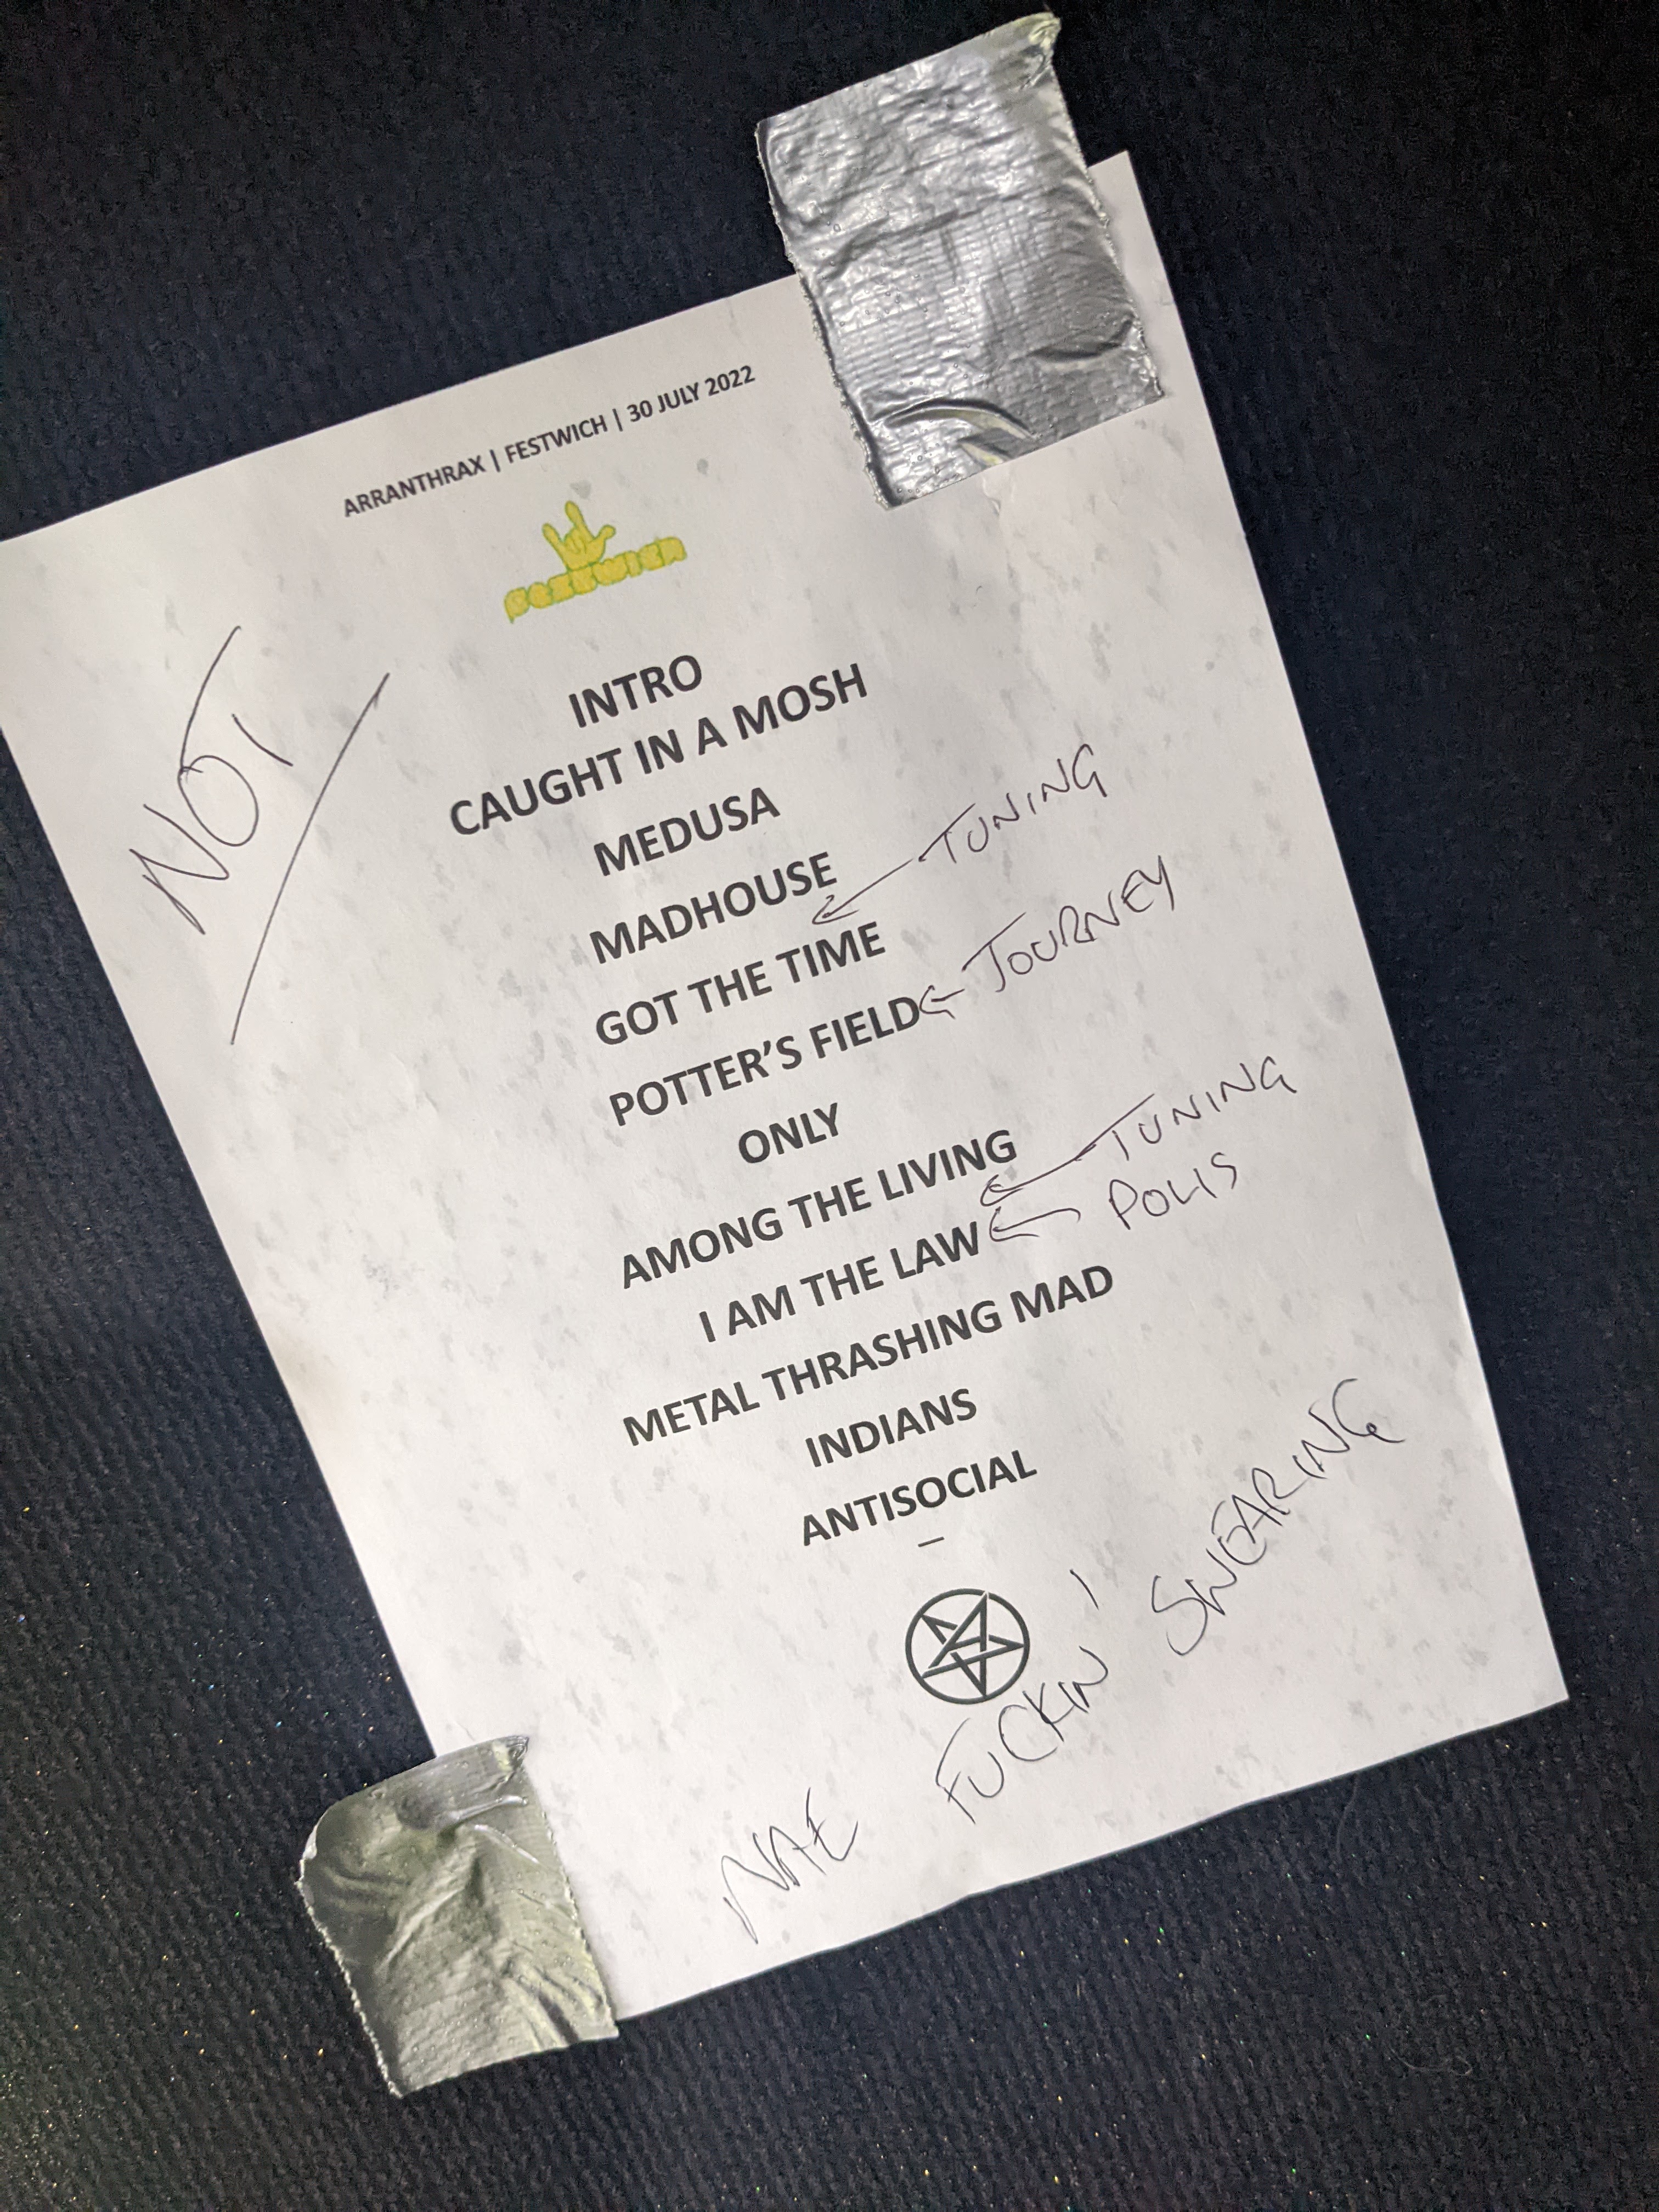 ARRANTHRAX | FESTWICH | 30 JULY 2022
FESTWICH
NOT
INTRO
CAUGHT IN A MOSH
MEDUSA
MADHOUSE
TUNING
GOT THE TIME
POTTER'S FIELD
JOURNEY
ONLY
AMONG THE LIVING
TUNING
I AM THE LAW
POLIS
METAL THRASHING MAD
INDIANS
ANTISOCIAL
–
NAE FUCKIN' SWEARING